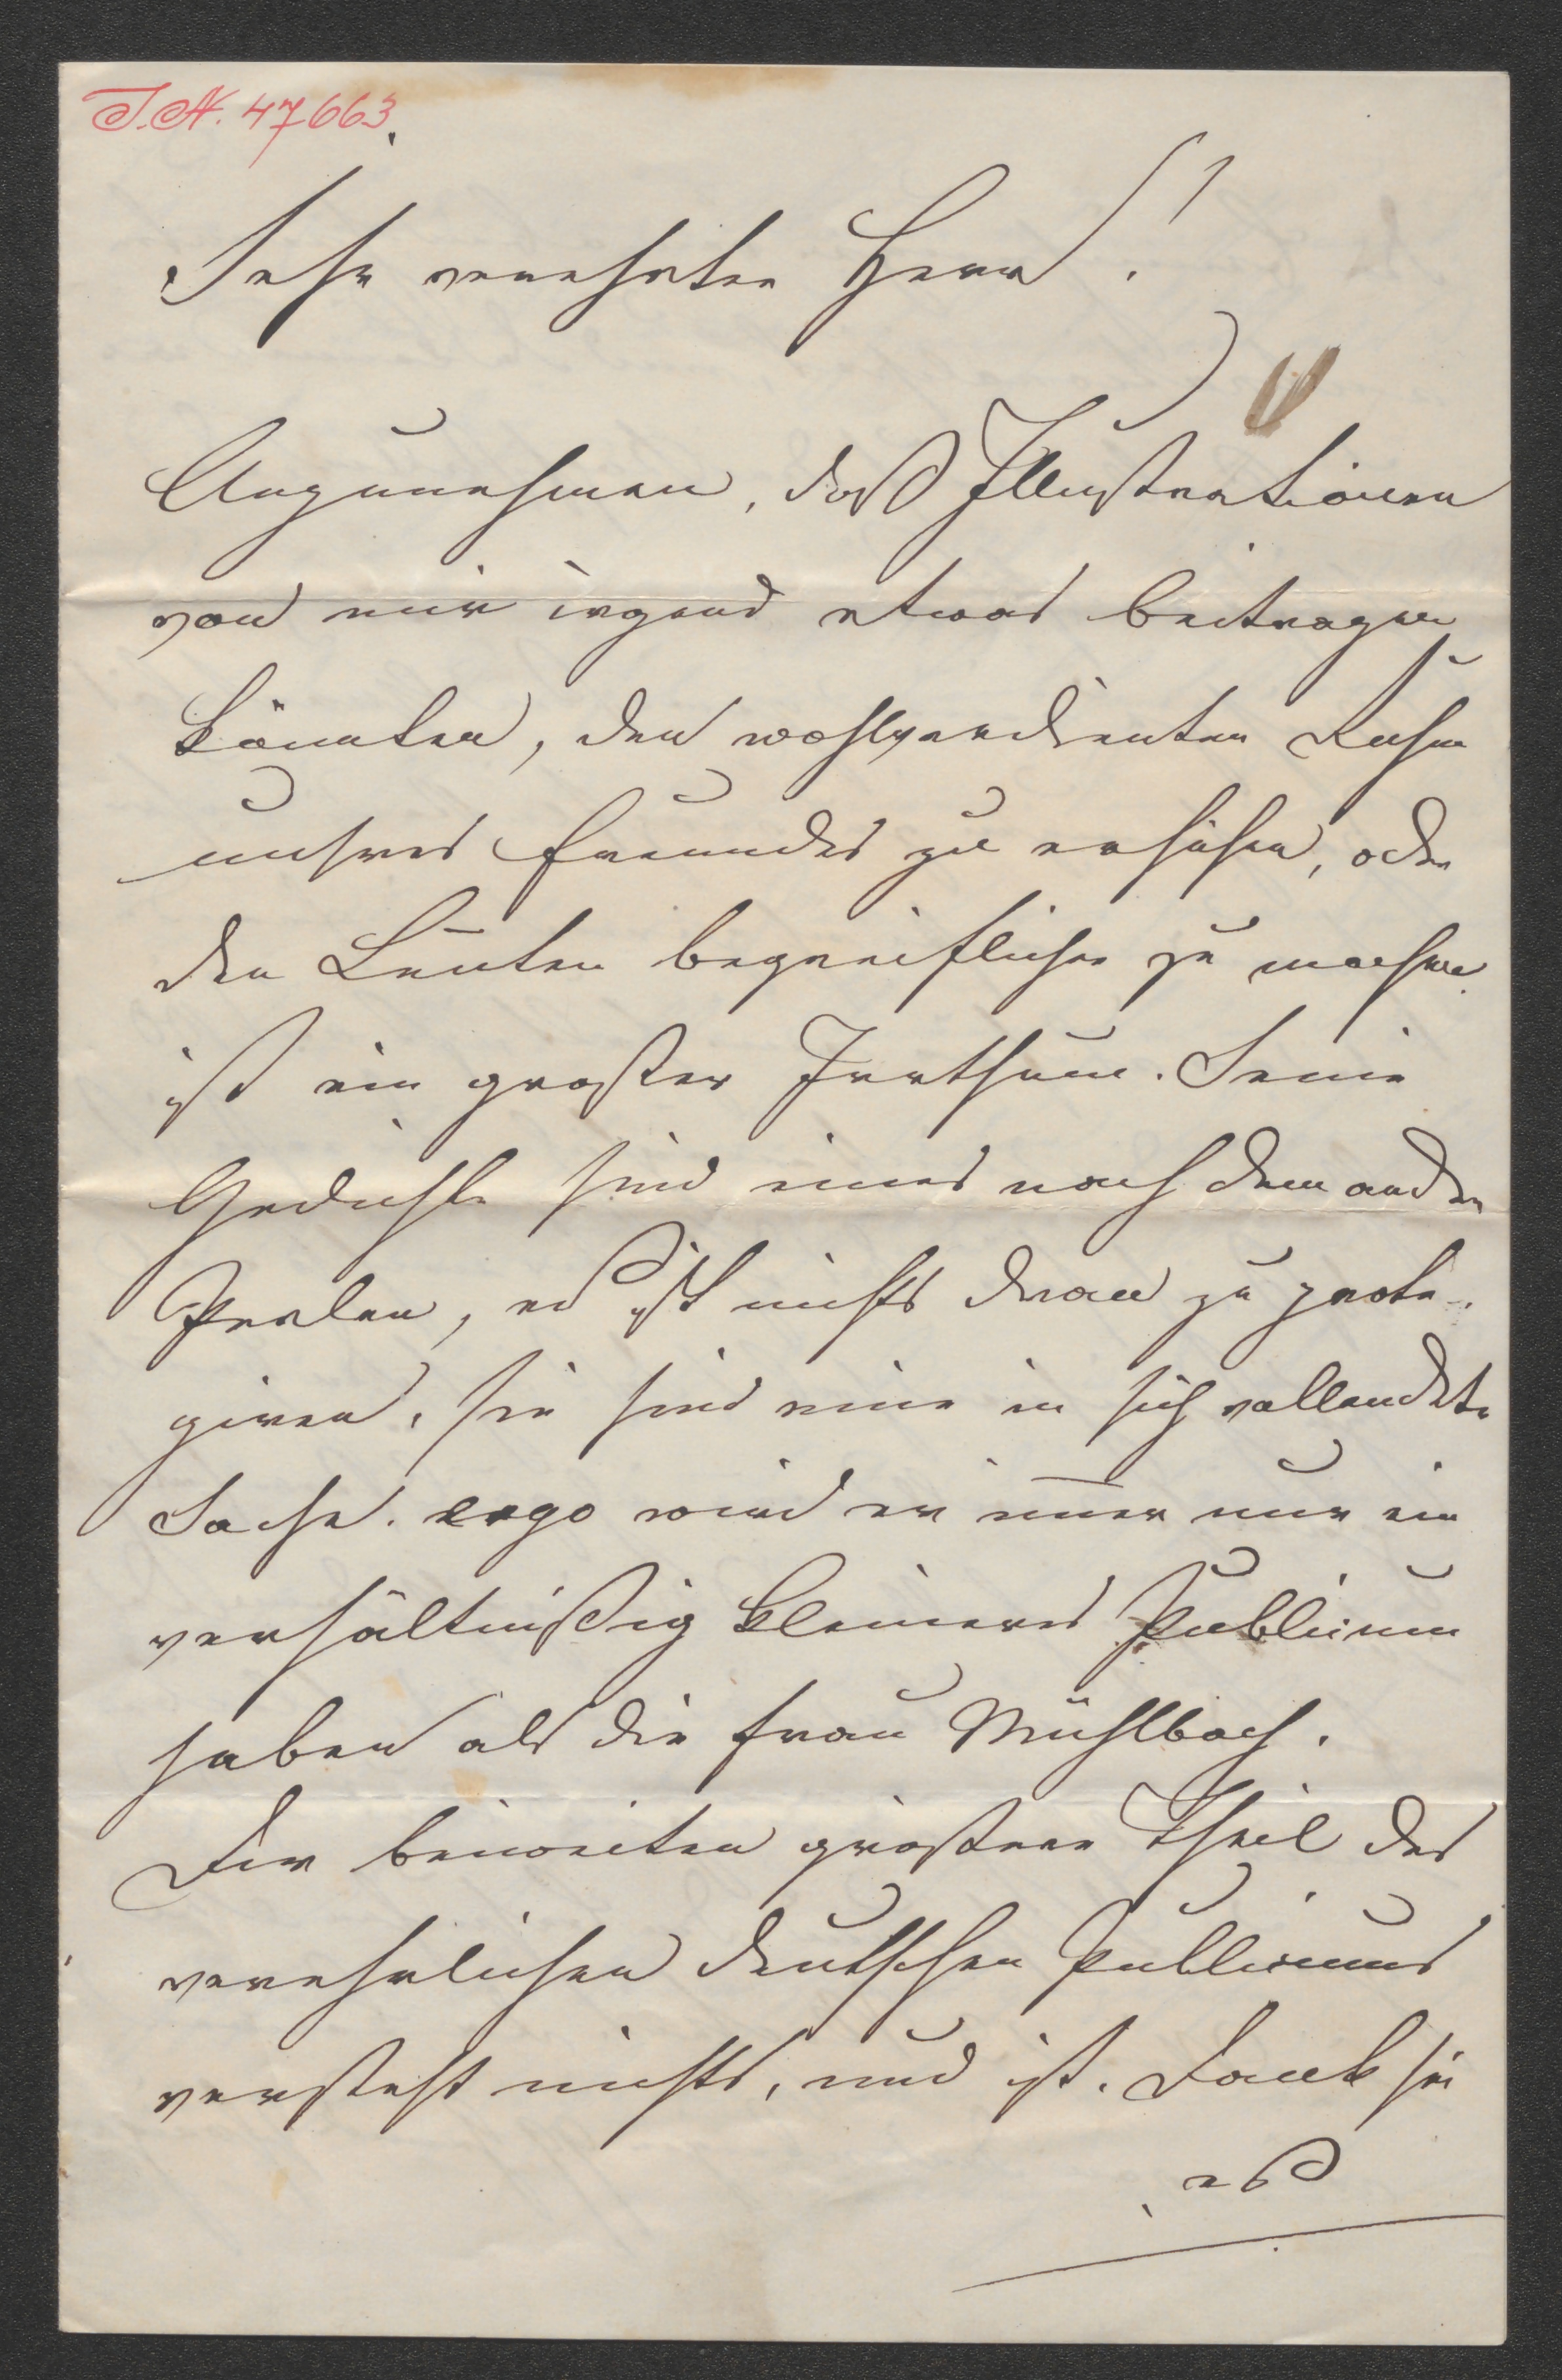 I.N. 47663.
Sehr verehrter Herr!
Anzunehmen, daß Illustrationen
von mir irgend etwas beitragen
könnten, den wohlverdienten Ruhm
unsres Freundes zu erhöhen, oder
den Leuten begreiflicher zu machen
ist ein großer Irrthum. Seine
Gedichte sind eines nach dem andern
Perlen, es ist nichts dran zu prote-
giren, sie sind eine in sich vollendete
Sache. ergo wird er im̅er nur ein
verhältnißig kleineres Publicum
haben als die Frau Mühlbach.
Der beiweiten größere Theil des
verehrlichen deutschen Publicums
versteht nichts, und ist. Dank sei
es